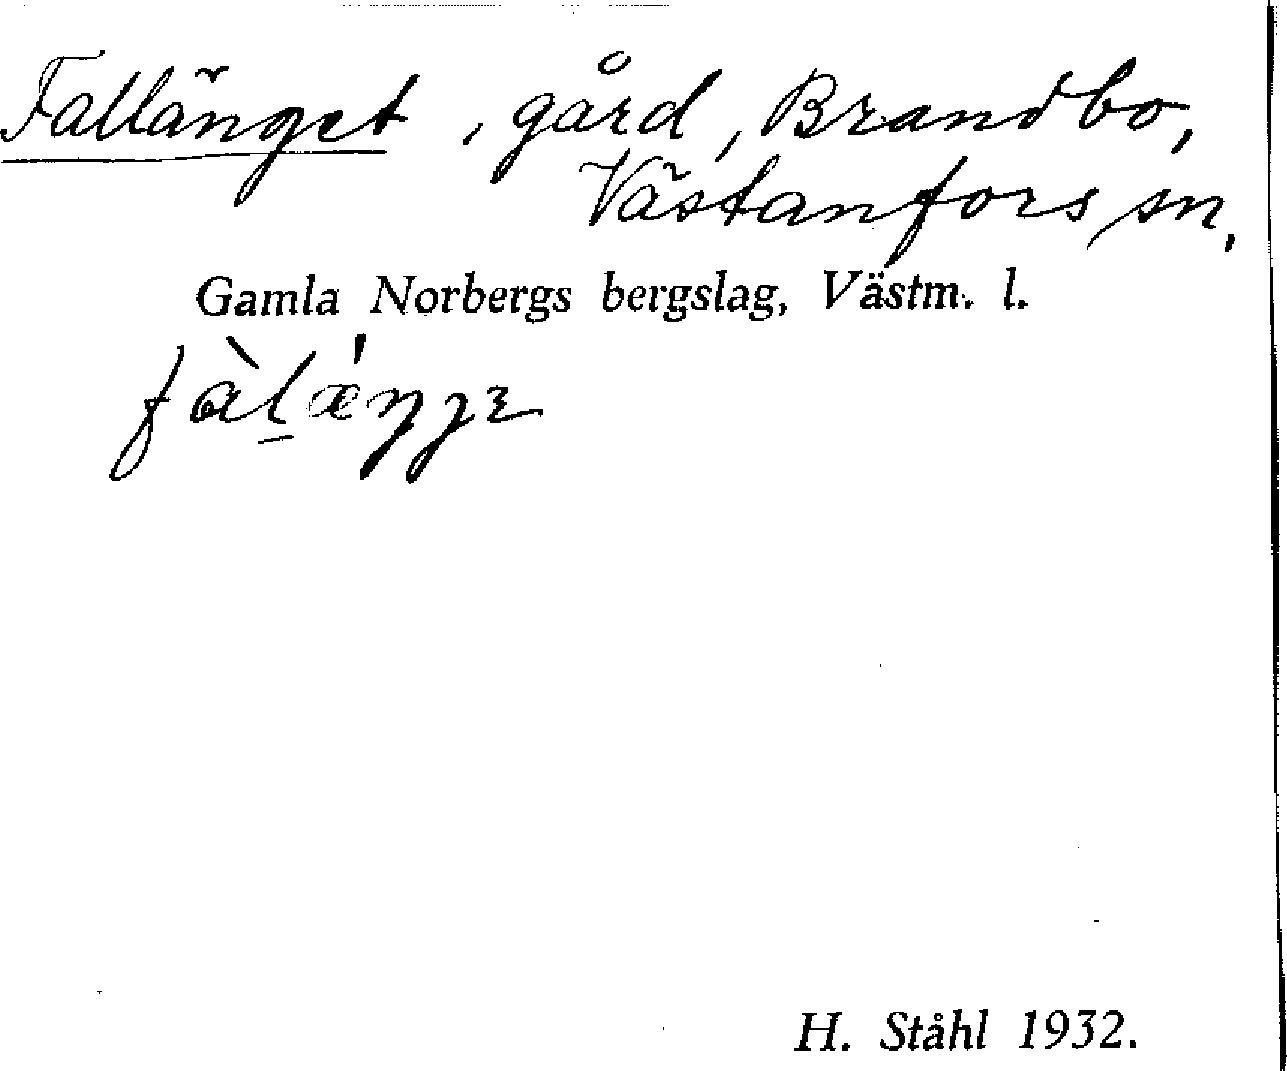 Fallänget, gård, Brandbo,
Västanfors sn,
Gamla Norbergs bergslag, Västm. l.
fàl̠æ̀ŋɟɛ
H. Ståhl 1932.